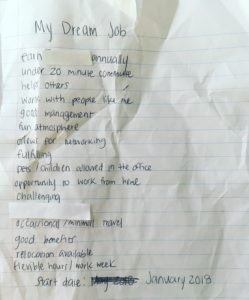 My Dream Job
earn annually
under 20 minute commute
help others
work with people like me
good management
fun atmosphere
allows for networking
fulfilling
pets/children allowed in the office
opportunity to work from home
challenging
occassional/minimal travel
good benefits
relocation available
flexible hours/work week
Start date: January 2013